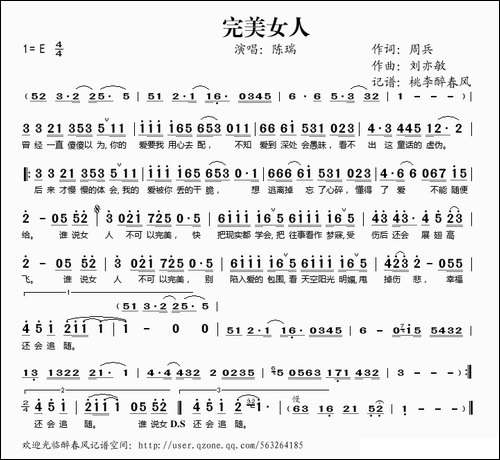 完美女人
1=E 4/4 演唱：陈瑞 作词：周兵
作曲：刘亦敏
记谱：桃李醉春风
(52 3·2 25·5 | 51 2·1 16·0345 | 6·6 5·3 32 | 1 - - -)
3 3 21 3 35 5 11 | i i i i 65 653 011 | 666 61 531 023 | 4·3 445 12·2
曾经一直傻傻以为,你的 爱要我用心去配, 不知 爱到深处会愚昧,看不 出 这童话的虚伪。
3 3 21 3 35 5 11 | i i i i 65 653 053 | 666 61 531 023 | 4·6 067 i5
后来才慢慢的体会,我的 爱被你丢的干脆, 想 逃离掉忘了心碎,懂得了 爱 不能随便
2 - 05 52 | 3 021 725 0·5 | 6 i i i i 6 i 65 | 6 i i i i 65 065 | 43 43 43 4·5
给。 谁说女 人 不可以完美, 快 把现实都学会,把 往事看作梦寐,受 伤后还会 展翅高
2 - 05 52 | 3 021 725 0·5 | 6 i i i i 6 i 65 | 6 i i i i 65 065 | 4 2 3 2 - 055
飞。 谁说女 人 不可以完美, 别 陷入爱的包围,看 天空阳光明媚,甩 掉伤悲, 幸福
1
(51 3·2 25·5
4 5 i 2 i i i | i - 0 0 | 51 2 1 16·0345 | 6 - 0·i 5 32
还会追随。
13 1322 21 - | 4·3 432 2 0235 | 5 0563 171 432 | 3 - - -)
2 3 慢
2/4 4 5 i | 2 i i i | i - 05 52 4 5 i | 2 i i i | i - - - | (63 16 21 52 | 2 - - -)
还会 追随。 谁说女D.S 还会 追随。
欢迎光临醉春风记谱空间：http://user.qzone.qq.com/563264185